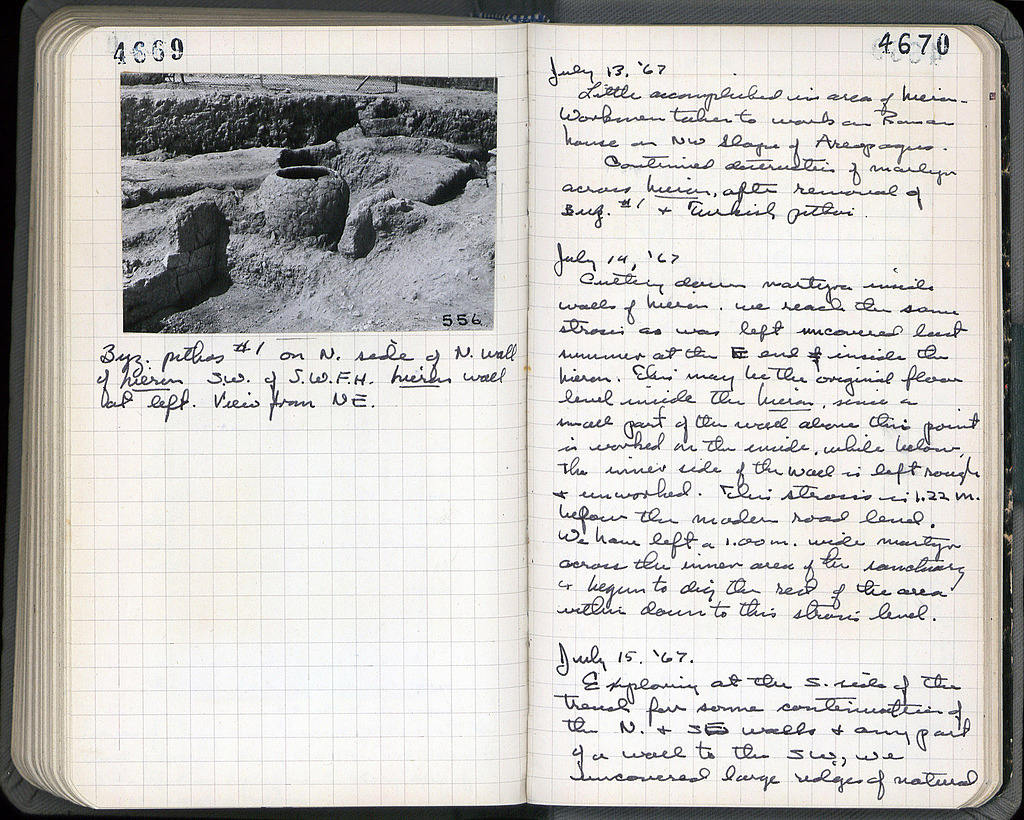 4669
556
Byz. pithos #1 on N. side of N. wall
of hieron S.W. of S.W.F.H. hieron wall
at left. View from NE.
4670
July 13, '67
Little accomplished in area of hieron.
Workmen taken to work on Roman
house on NW Slope of Areopagus.
Continued destruction of martyr
across hieron, after removal of
Byz. #1 + Turkish pithoi.
July 14, '67
Cutting down martyra inside
walls of hieron, we reach the same
strosis as was left uncovered last
summer at the E end inside the
hieron. This may be the original floor
level inside the hieron, since a
small part of the wall above this point
is worked on the inside, while below,
the inner side of the wall is left rough
+ unworked. This strosis is 1.22 m.
below the modern road level.
We have left a 1.00 m. wide martyr
across the inner area of the sanctuary
+ begun to dig the rest of the area
within down to this strosis level.
July 15, '67.
Exploring at the S. side of the
trench for some continuation of
the N. + SE walls + any part
of a wall to the SW, we
uncovered large ridges of natural